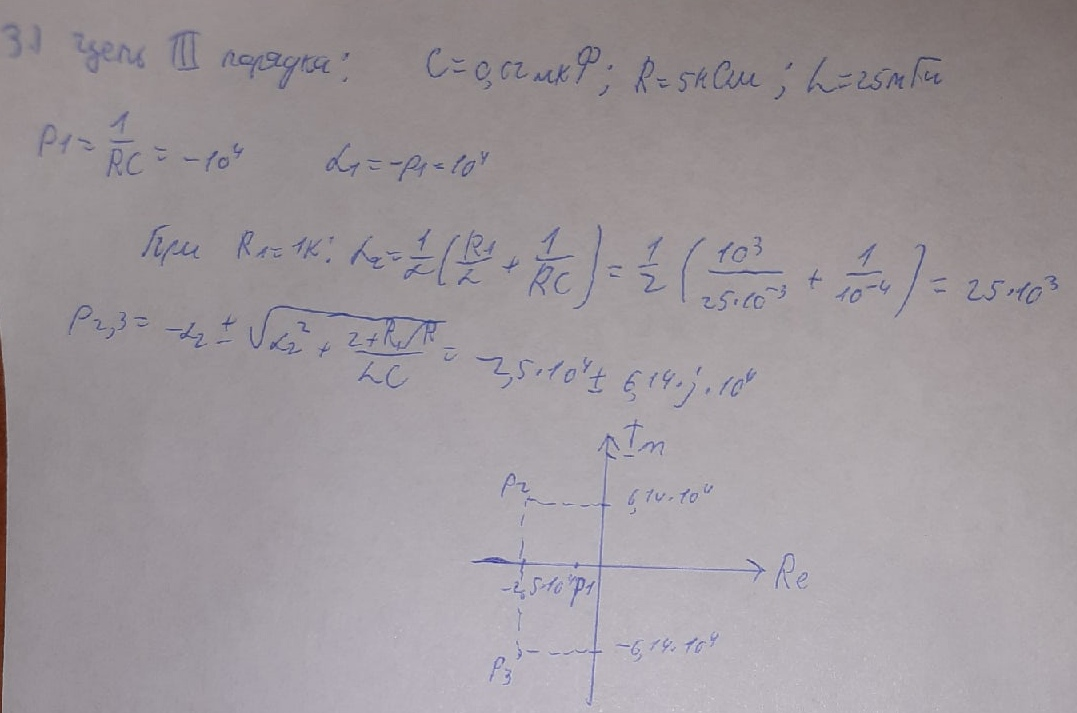 3) Цепь III порядка: C=0,02мкФ; R=5кОм; L=25мГн
P1 = 1/RC = -10⁴ α1 = -P1 = 10⁴
При R1=1к: α2 = 1/2 (R1/L + 1/RC) = 1/2 (10³/25·10⁻³ + 1/10⁻⁴) = 25·10³
P2,3 = -α2 ± √(α2² + 2+R1/R / LC) = -2,5·10⁴ ± 6,14·j·10⁴
Im
P2 6,14·10⁴
Re
-2,5·10⁴ P1
-6,14·10⁴
P3